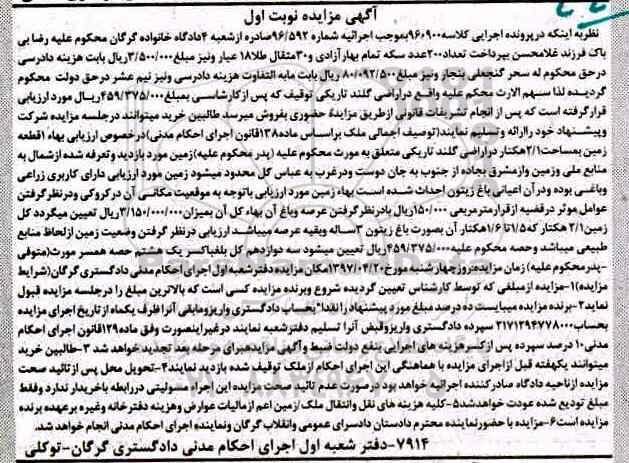 آگهی مزایده نوبت اول
نظربه اینکه درپرونده اجرایی کلاسه۹۶۰۹۰۰بموجب اجرائیه شماره ۹۶/۵۹۲صادره ازشعبه ۴دادگاه خانواده گرگان محکوم علیه رضا بی
باک فرزند غلامحسن بپرداخت تعداد۲۰۰عدد سکه تمام بهارآزادی و۳۰مثقال طلا۱۸ عیار ونیز مبلغ۳/۵۰۰/۰۰۰ریال بابت هزینه دادرسی
درحق محکوم له سحر گنجعلی بنجار ونیز مبلغ۸۰/۰۹۲/۵۰۰ ریال بابت مابه التفاوت هزینه دادرسی ونیز نیم عشر درحق دولت محکوم
گردیده لذا سهم الارث محکم علیه واقع دراراضی گلند تاریکی توقیف که پس ازکارشناسی بمبلغ۴۵۹/۳۷۵/۰۰۰ریال مورد ارزیابی
قرارگرفته است که پس از انجام تشریفات قانونی ازطریق مزایدۀ حضوری بفروش میرسد طالبین خرید میتوانند درجلسه مزایده شرکت
وپیشنهاد خود راارائه وتسلیم نمایند(توصیف اجمالی ملک براساس ماده۱۳۸قانون اجرای احکام مدنی)درخصوص ارزیابی بهاء ۱قطعه
زمین بمساحت۲/۱هکتار دراراضی گلند تاریکی متعلق به مورث محکوم علیه (پدر محکوم علیه)زمین مورد بازدید وتعرفه شده ازشمال به
منابع ملی وزمین وازمشرق بجاده از جنوب به جان دوست ودرغرب به عباس کل محدود میشود زمین مورد ارزیابی دارای کاربری زراعی
وباغی بوده ودرآن اعیانی باغ زیتون احداث شده است بهاء زمین مورد ارزیابی باتوجه به موقعیت مکانی آن درکروکی ودرنظرگرفتن
عوامل موثر درقضیه ازقرارمترمربعی ۱۵۰/۰۰۰ریال بادرنظرگرفتن عرصه وباغ آن بهاء کل آن بمیزان۳/۱۵۰/۰۰۰/۰۰۰ریال تعیین میگردد کل
زمین۲/۱ هکتار که۱/۵تا ۱/۶هکتار آن بصورت باغ زیتون ۳ساله وبقیه عرصه میباشد ارزیابی درنظر گرفتن وضعیت زمین ازلحاظ منابع
طبیعی میباشد وحصه محکوم علیه۴۵۹/۳۷۵/۰۰۰ریال تعیین میشود سه دوازدهم کل بلغباکسر یک هشتم حصه همسر مورث(متوفی
-پدرمحکوم علیه) زمان مزایده:روزچهارشنبه مورخ۱۳۹۷/۰۴/۲۰مکان مزایده دفترشعبه اول اجرای احکام مدنی دادگستری گرگان(شرایط
مزایده)۱-مزایده ازمبلغی که توسط کارشناس تعیین گردیده شروع وبرنده مزایده کسی است که بالاترین مبلغ را درجلسه مزایده قبول
نماید۲-برنده مزایده میبایست ده درصد مبلغ مورد پیشنهاد را نقدا" بحساب دادگستری واریزومابقی آنرا ظرف یکماه از تاریخ اجرای مزایده
بحساب۲۱۷۱۲۹۴۷۷۸۰۰۰ سپرده دادگستری واریزوقبض آنرا تسلیم دفترشعبه نمایند درغیراینصورت وفق ماده۱۲۹قانون اجرای احکام
مدنی۱۰ درصد سپرده پس ازکسرهزینه های اجرایی بنفع دولت ضبط و آگهی مزایدهبرای مرحله بعد تجدید خواهد شد ۳-طالبین خرید
میتوانند یکهفته قبل ازاجرای مزایده با هماهنگی این اجرای احکام ازملک توقیف شده بازدید نمایند۴-تحویل محل پس ازتائید صحت
مزایده ازناحیه دادگاه صادرکننده اجرائیه خواهد بود درصورت عدم تائید صحت مزایده این اجراء مسولیتی دررابطه باخریدار ندارد وفقط
مبلغ تودیع شده عودت خواهدشد۵-کلیه هزینه های نقل وانتقال ملک/زمین اعم ازمالیات عوارض وهزینه دفترخانه وغیره برعهده برنده
مزایده است۶-مزایده با حضورنماینده محترم دادستان دادسرای عمومی وانقلاب گرگان ونماینده اجرای احکام مدنی انجام خواهد شد.
۷۹۱۴-دفتر شعبه اول اجرای احکام مدنی دادگستری گرگان-توکلی